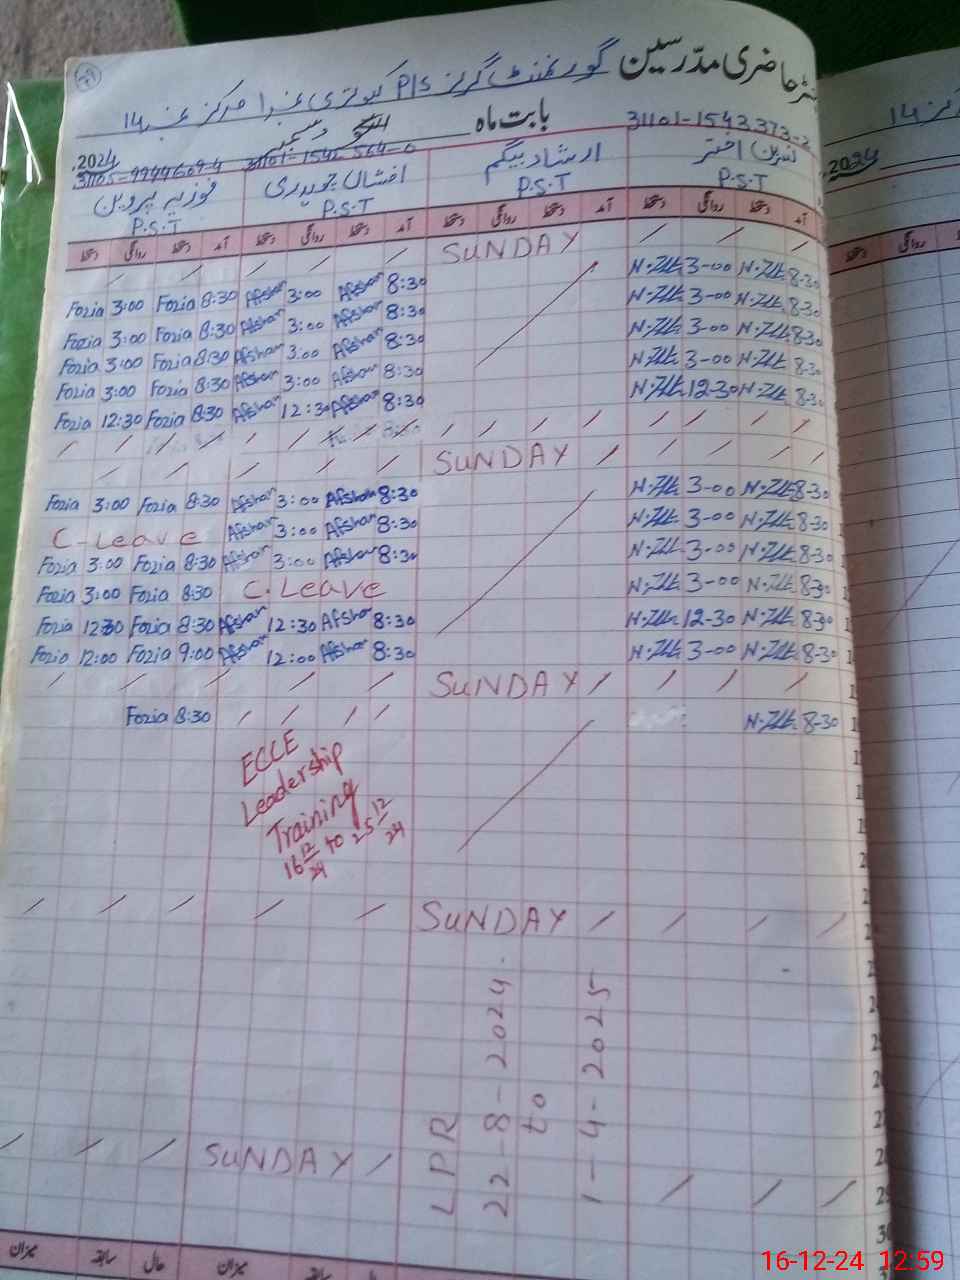 رجسٹر حاضری مدرسین گورنمنٹ گرلز P/S کوئری نمبر 1 مرکز نمبر 14
بابت ماہ دسمبر 2024
31101-1543373-2
نسرین اختر
P.S.T
ارشاد بیگم
P.S.T
افشاں چوہدری
P.S.T
فوزیہ پروین
P.S.T
دستخط روانگی دستخط آمد دستخط روانگی دستخط آمد دستخط روانگی دستخط آمد دستخط روانگی دستخط آمد
/ / / / / / SUNDAY / / /
Fozia 3:00 Fozia 8:30 Afshan 3:00 Afshan 8:30 3-00 8-30
Fozia 3:00 Fozia 8:30 Afshan 3:00 Afshan 8:30 3-00 8-30
Fozia 3:00 Fozia 8:30 Afshan 3:00 Afshan 8:30 3-00 8-30
Fozia 3:00 Fozia 8:30 Afshan 3:00 Afshan 8:30 3-00 8-30
Fozia 12:30 Fozia 8:30 Afshan 12:30 Afshan 8:30 12-30 8-30
/ / / / / / / / / / / / / /
/ / / / / SUNDAY / / / /
Fozia 3:00 Fozia 8:30 Afshan 3:00 Afshan 8:30 3-00 8-30
C-Leave Afshan 3:00 Afshan 8:30 3-00 8-30
Fozia 3:00 Fozia 8:30 Afshan 3:00 Afshan 8:30 3-00 8-30
Fozia 3:00 Fozia 8:30 C.Leave 3-00 8-30
Fozia 12:30 Fozia 8:30 Afshan 12:30 Afshan 8:30 12-30 8-30
Fozia 12:00 Fozia 9:00 Afshan 12:00 Afshan 8:30 3-00 8-30
/ / / / / SUNDAY / / / /
Fozia 8:30 / / / / 8-30
ECCE
Leadership
Training
16 12/24 to 25 12/24
/ / / / / SUNDAY / / / /
LPR
22-8-2024
to
1-4-2025
/ / / SUNDAY / / / /
30
میزان سابقہ حال میزان سابقہ
2024
16-12-24 12:59